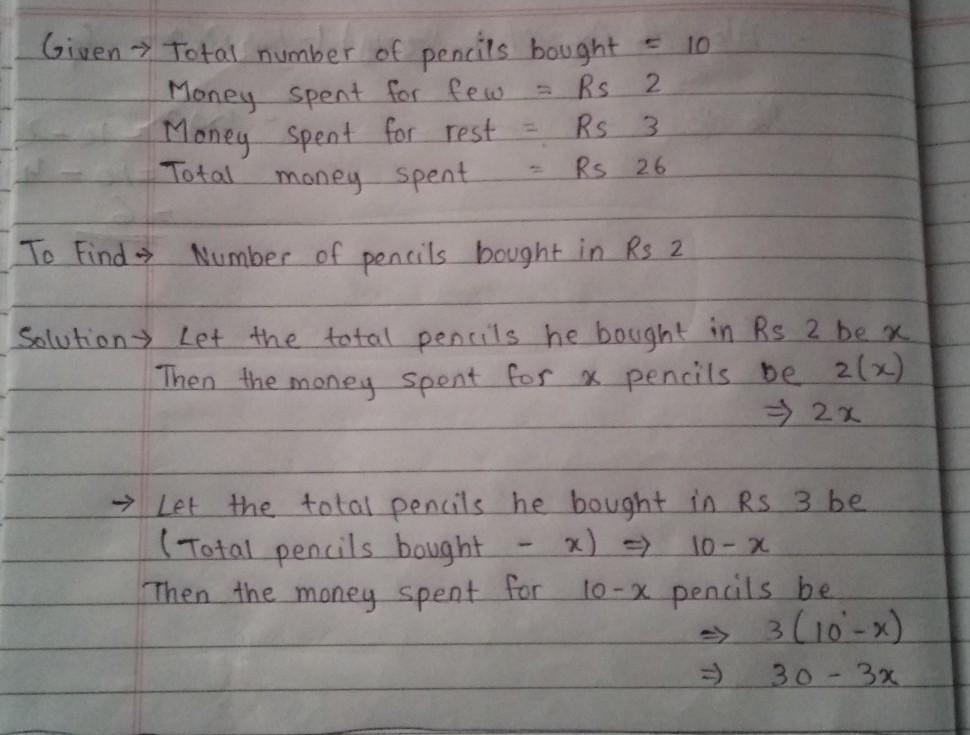 Given → Total number of pencils bought = 10
Money spent for few = Rs 2
Money spent for rest = Rs 3
Total money spent = Rs 26
To Find → Number of pencils bought in Rs 2
Solution → Let the total pencils he bought in Rs 2 be x
Then the money spent for x pencils be 2(x)
⇒ 2x
→ Let the total pencils he bought in Rs 3 be
(Total pencils bought - x) ⇒ 10-x
Then the money spent for 10-x pencils be
⇒ 3(10-x)
⇒ 30-3x